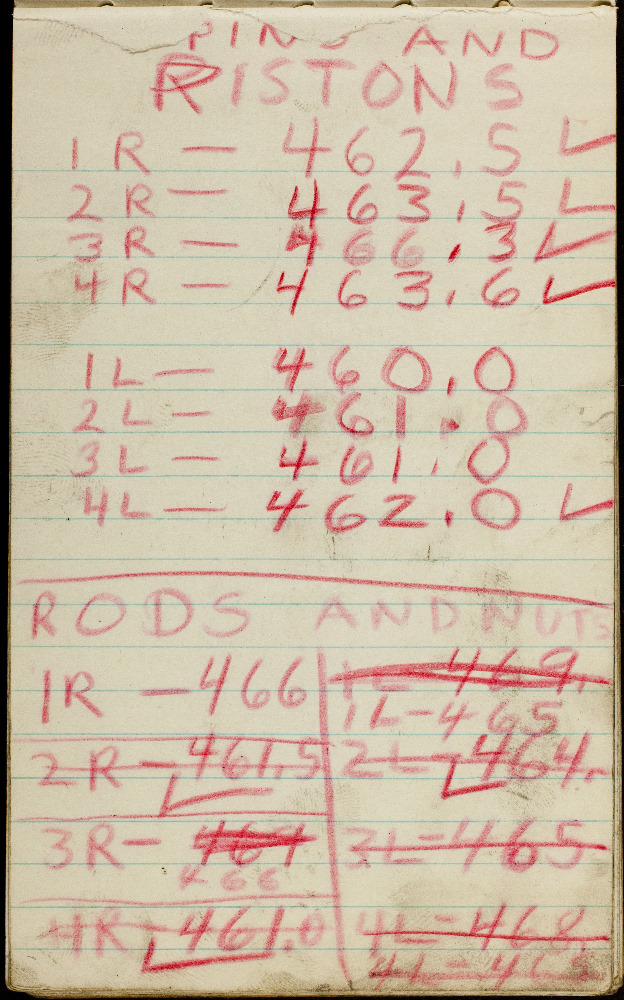 PINS AND
PISTONS
1R — 462.5 ✓
2R — 463.5 ✓
3R — 466.3 ✓
4R — 463.6 ✓
1L — 460.0
2L — 461.0
3L — 461.0
4L — 462.0 ✓
RODS AND NUTS
1R — 466
2R — 461.5 ✓
3R — 469
466
4R — 461.0 ✓
1L 469.
1L — 465
2L — 464. ✓
3L — 465
4L — 468.
4L — 465